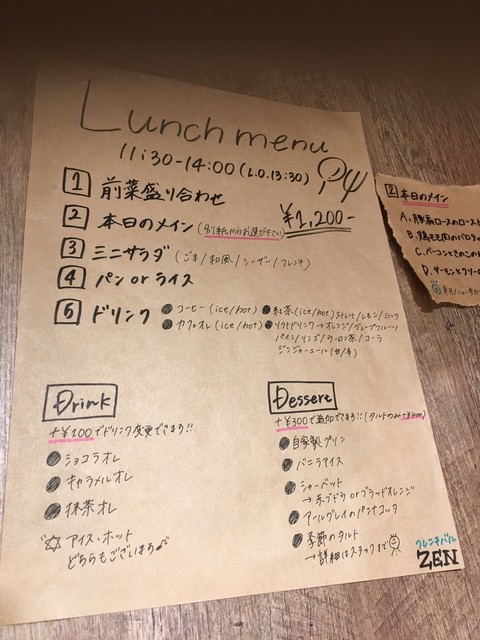 Lunch menu
11:30-14:00 (L.O.13:30)
1 前菜盛り合わせ
2 本日のメイン (別紙からお選び下さい)
¥1,200-
3 ミニサラダ (ごま/和風/シーザー/フレンチ)
4 パン or ライス
5 ドリンク
コーヒー (ice/hot)
紅茶 (ice/hot) ストレート/レモン/ミルク
カフェオレ (ice/hot)
ソフトドリンク → オレンジ/グレープフルーツ/
パイン/リンゴ/ウーロン茶/コーラ
ジンジャーエール (甘/辛)
Drink
+¥100でドリンク変更できます!!
ショコラオレ
キャラメルオレ
抹茶オレ
アイス・ホット
どちらもございます♪
Dessert
+¥300で追加できます!! (タルトのみ+¥400)
自家製プリン
バニラアイス
シャーベット
→ 赤ブドウ or ブラッドオレンジ
アールグレイのパンナコッタ
季節のタルト
→詳細はスタッフまで
フレンチバル
ZEN
2 本日のメイン
A. 豚肩ロースのロースト
B. 鶏モモ肉の
C. ベーコンときのこの
D. サーモンとクリーム